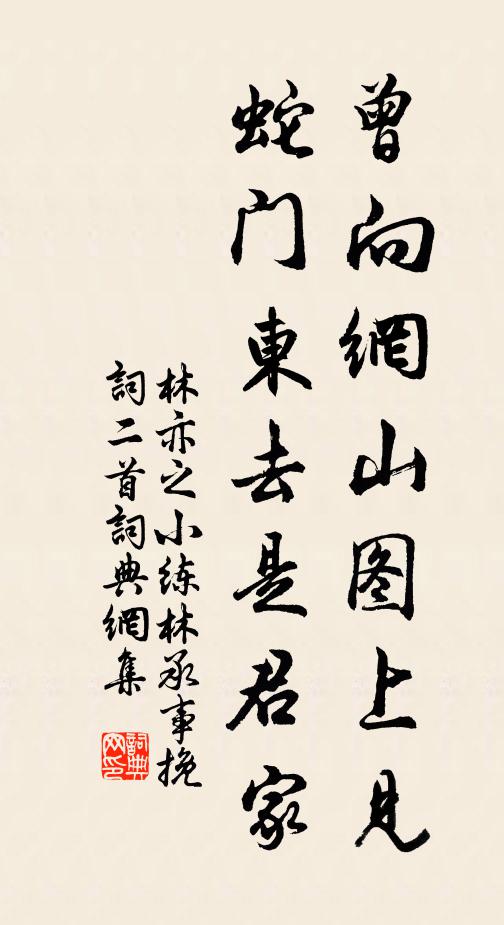 曾向網山图上見
蛇门東去是君家
林亦之小练林承事挽
詞二首詞典網集
詞典网印